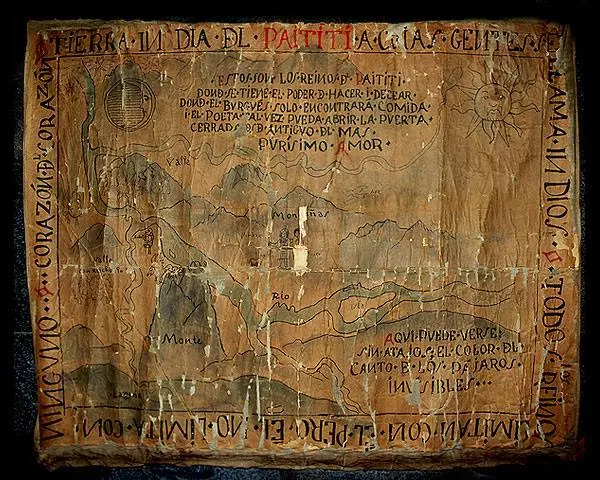 TIERRA·IN DIA·DL·PAITITI·A·CUIAS·GENTES·SE
LLAMA·INDIOS·TODOS·REINOS
LIMITAN·CON·EL·PERO·EL·NO·LIMITA·CON
NINGUNO··CORAZÓN·DL·CORAZÓN
·ESTOS·SON·LOS·REINOS·D·PAITITI·
DOND·SE·TIENE·EL·PODER·D·HACER·I·DECEAR·
DOND·EL·BURGUÉS·SOLO·ENCONTRARA·COMIDA·
I·EL·POETA·TAL·VEZ·PUEDA·ABRIR·LA·PUERTA·
CERRADA·DSD·ANTIGUO·DL·MAS·
PURÍSIMO·AMOR·
Valle
Montañas
Valle
Rio
Monte
AQUI·PUEDE·VERSE·
SIN·ATAJOS·EL·COLOR·DL·
CANTO·D·LOS·PAJAROS·
INVISIBLES...